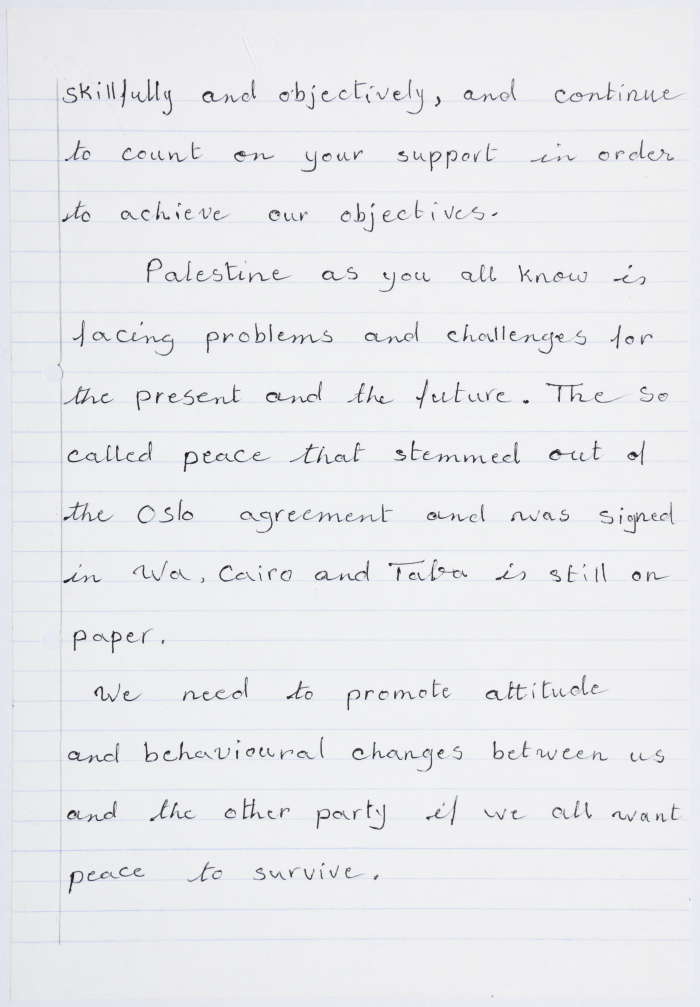 skillfully and objectively, and continue
to count on your support in order
to achieve our objectives.
Palestine as you all know is
facing problems and challenges for
the present and the future. The so
called peace that stemmed out of
the Oslo agreement and was signed
in Wa, Cairo and Taba is still on
paper.
We need to promote attitude
and behavioural changes between us
and the other party if we all want
peace to survive.